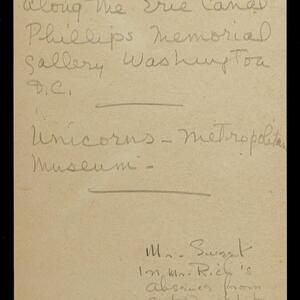 along the Erie Canal
Phillips Memorial
Gallery Washington
D.C.
Unicorns - Metropolitan
Museum -
Mr. Sweet
In Mr. Rich's
absence from